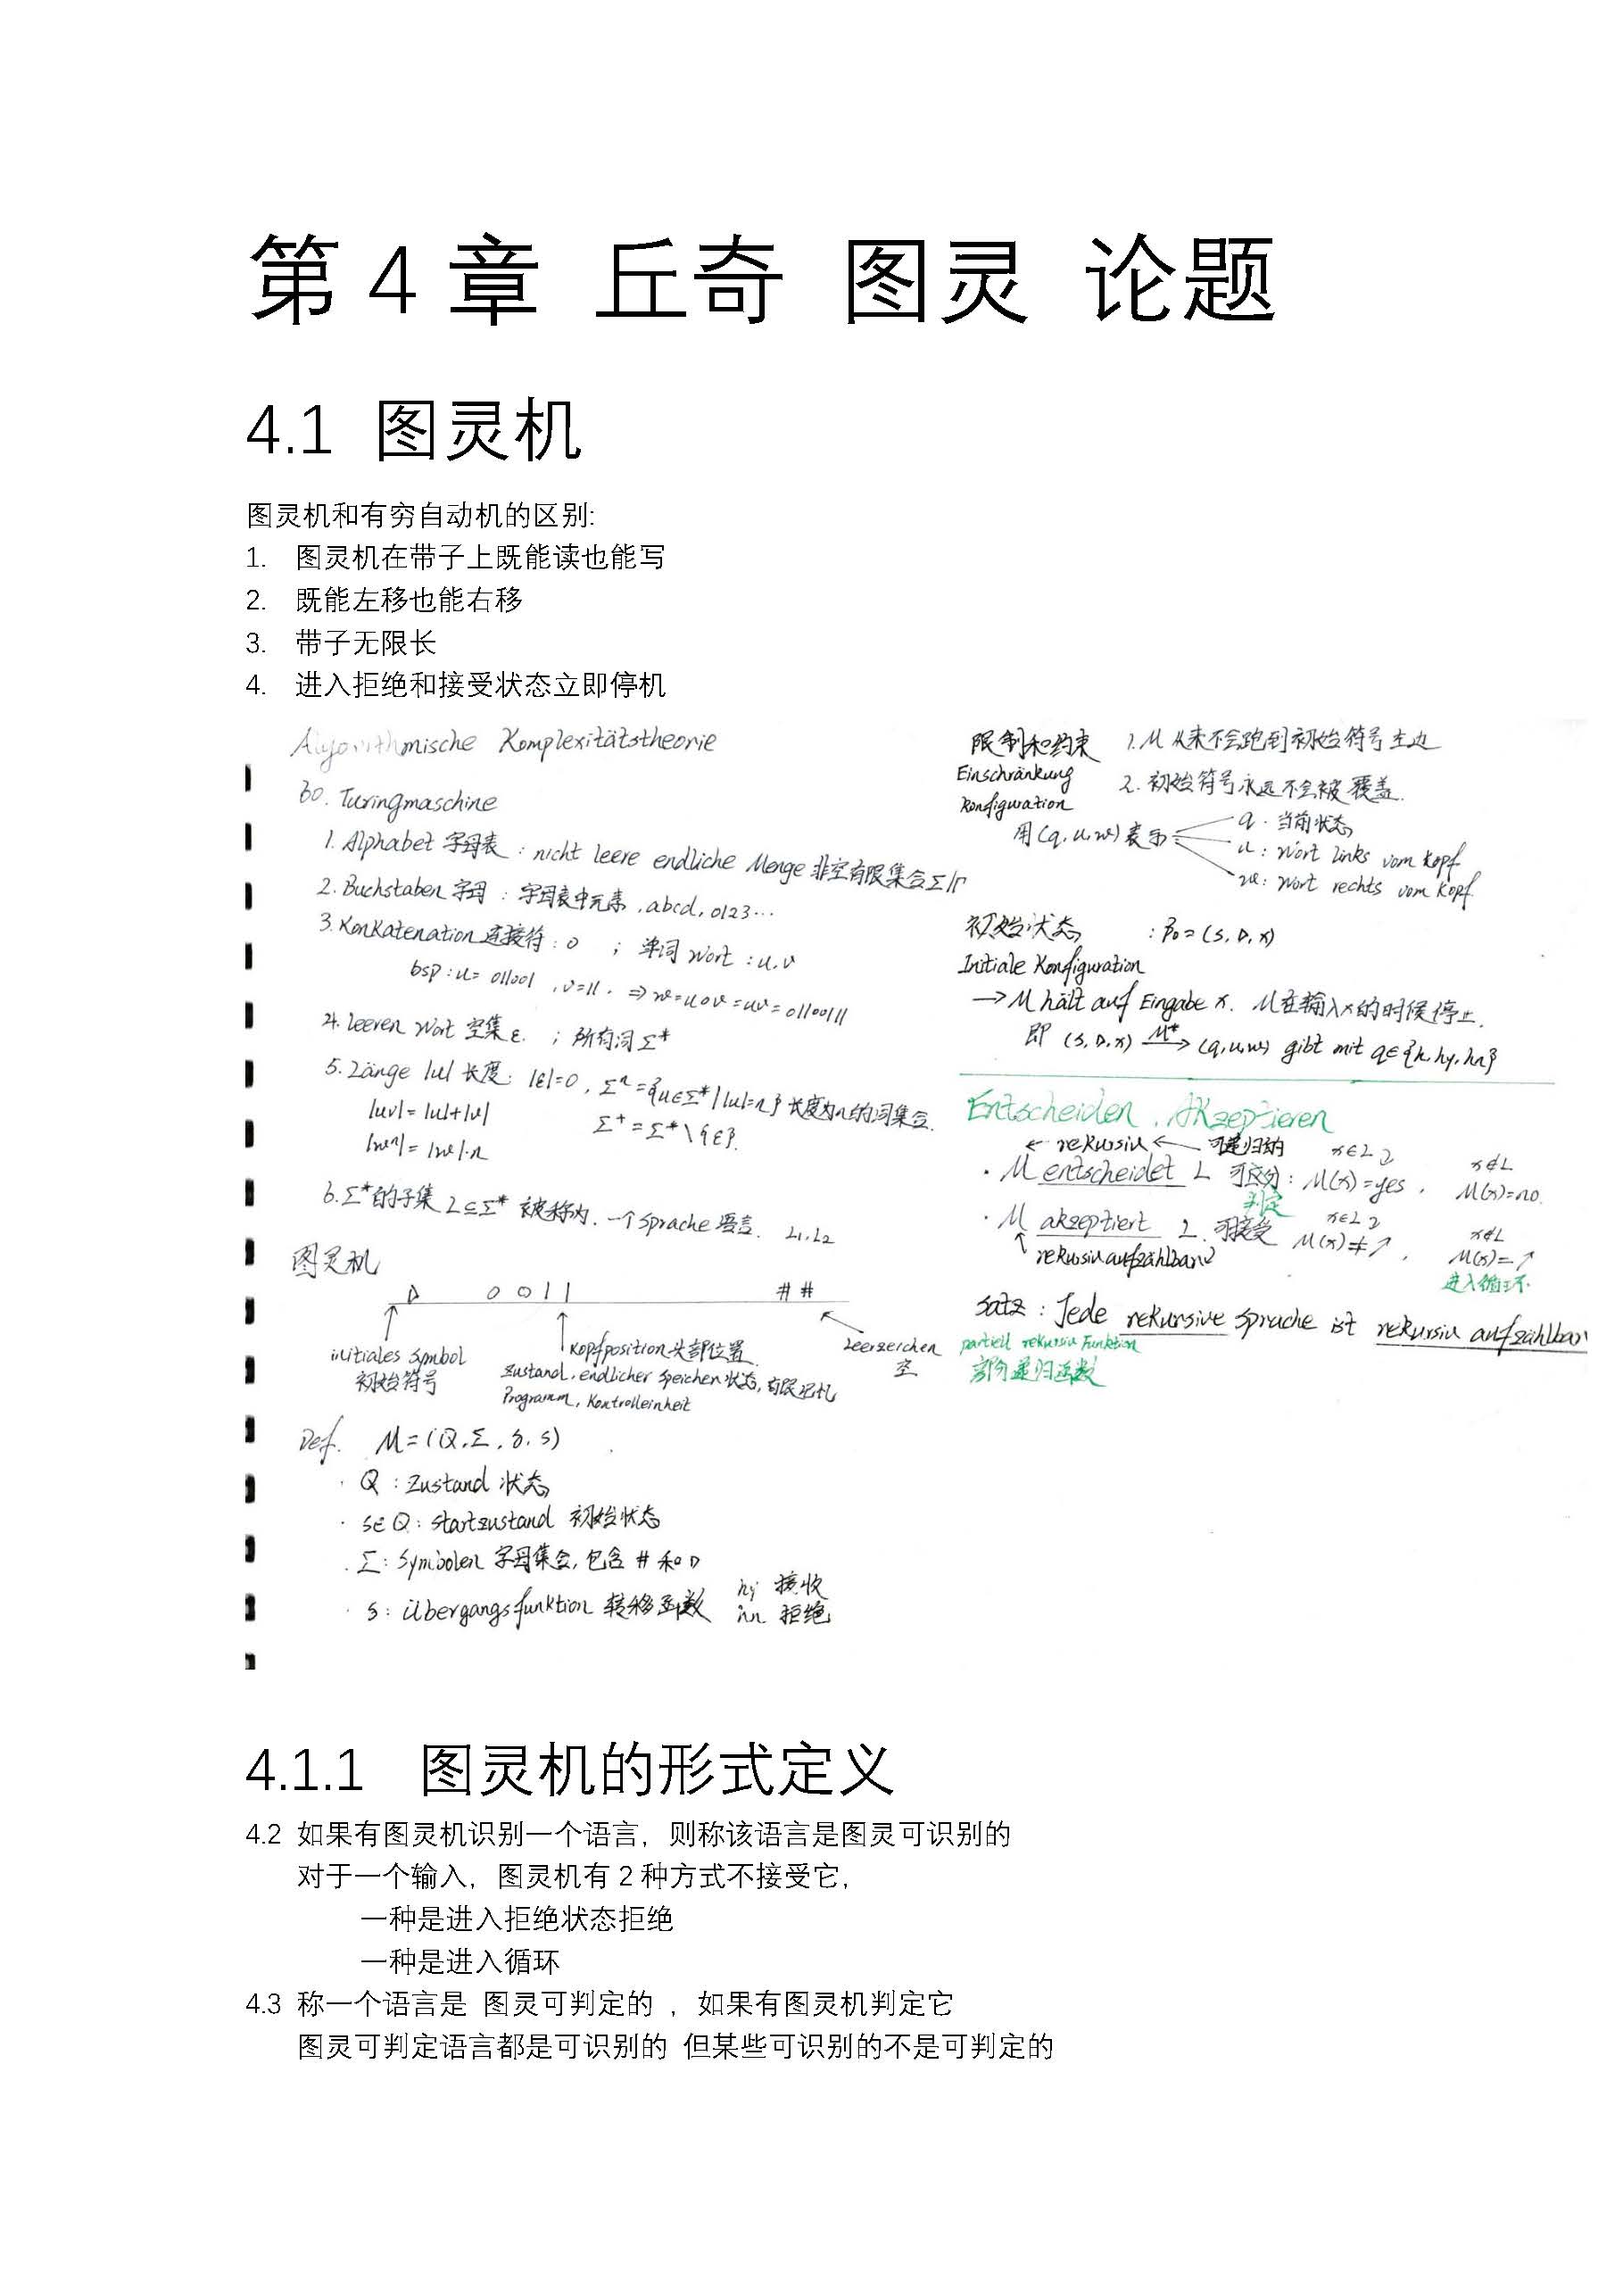 第 4 章 丘奇 图灵 论题
4.1 图灵机
图灵机和有穷自动机的区别:
1. 图灵机在带子上既能读也能写
2. 既能左移也能右移
3. 带子无限长
4. 进入拒绝和接受状态立即停机
Algorithmische Komplexitätstheorie
60. Turingmaschine
1. Alphabet 字母表 : nicht leere endliche Menge 非空有限集合 Σ/Γ
2. Buchstaben 字母 : 字母表中元素, abcd, 0123...
3. Konkatenation 连接符 : o ; 单词 Wort : u, v
bsp : u= 011001 , v=11. ⇒ w=u o v = uv = 01100111
4. Leeren Wort 空集 ε. ; 所有词 Σ*
5. Länge |u| 长度: |ε|=0, Σⁿ={u∈Σ* | |u|=n} 长度为n的词集合.
|uv|= |u|+|v|
Σ⁺ = Σ* \ {ε}.
|wⁿ|= |w|·n
6. Σ*的子集 L⊆Σ* 被称为. 一个 Sprache 语言. L₁, L₂
图灵机
▷ 0 0 1 1 # #
initiales Symbol
初始符号
Kopfposition 头部位置
Zustand, endlicher Speicher 状态, 有限记忆
Programm, Kontrolleinheit
Leerzeichen
空
Def. M=(Q, Σ, δ, s)
· Q : Zustand 状态
· s∈Q : Startzustand 初始状态
· Σ : Symbolen 字母集合, 包含 # 和 ▷
· δ : übergangsfunktion 转移函数
hy 接收
hn 拒绝
限制和约束 1. M 从来不会跑到初始符号左边
Einschränkung 2. 初始符号永远不会被覆盖.
Konfiguration
用(q, u, w)表示
q · 当前状态
u : Wort links vom Kopf
w : Wort rechts vom Kopf.
初始状态 : β₀ = (s, ▷, x)
Initiale Konfiguration
→ M hält auf Eingabe x. M在输入x的时候停止.
即 (s, ▷, x) M*→ (q, u, w) gibt mit q∈{h, hy, hn}
Entscheiden, Akzeptieren
← rekursiv ← 可递归的
· M entscheidet L 可区分 : x∈L M(x)=yes, x∉L M(x)=no.
判定
· M akzeptiert L 可接受 x∈L M(x)≠↗, x∉L M(x)=↗
rekursiv aufzählbar
进入循环
Satz : Jede rekursive Sprache ist rekursiv aufzählbar
partiell rekursiv Funktion
部分递归函数
4.1.1 图灵机的形式定义
4.2 如果有图灵机识别一个语言，则称该语言是图灵可识别的
对于一个输入，图灵机有 2 种方式不接受它，
一种是进入拒绝状态拒绝
一种是进入循环
4.3 称一个语言是 图灵可判定的 ，如果有图灵机判定它
图灵可判定语言都是可识别的 但某些可识别的不是可判定的